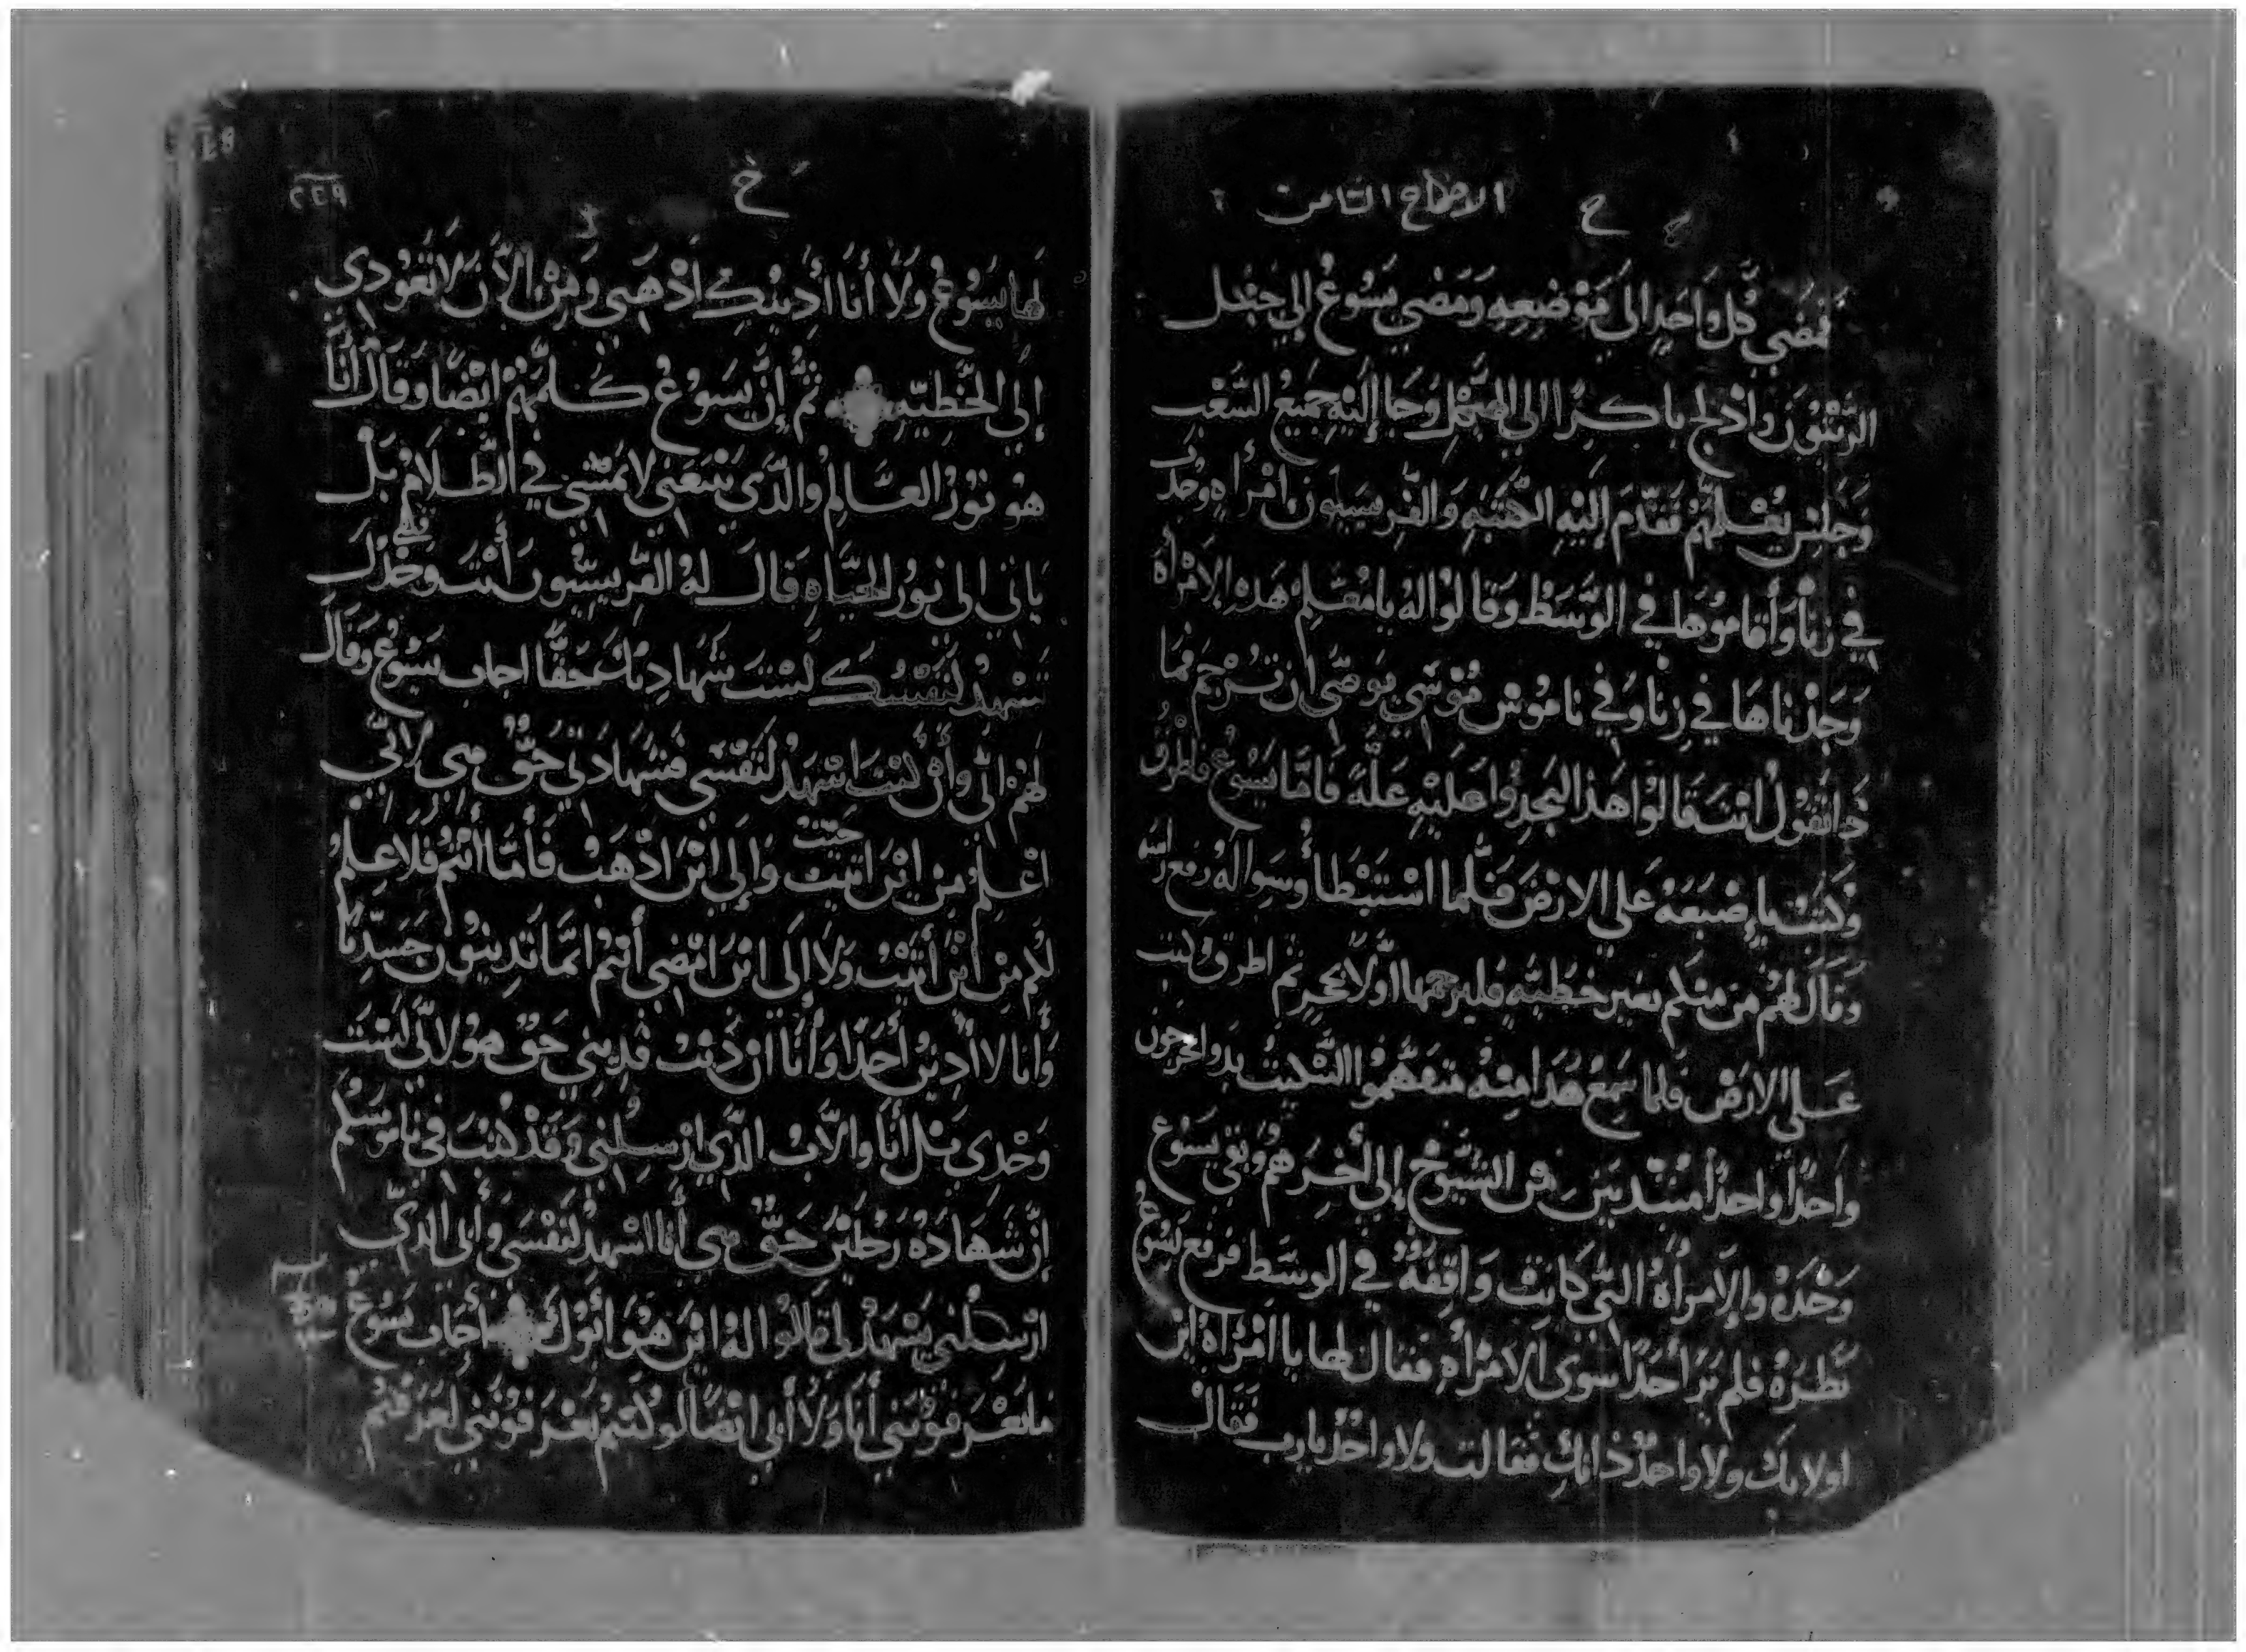 الاصحاح الثامن
ح
فمَضي كُل وَاحَدٍ الى مَوْضِعِهِ وَمَضي يَسُوعُ الي جَبَل
الزَّيتُونَ وادْلج باكِرًا الي الهيكل وَجَا إِلَيْهِ جَمِيعُ الشَعْب
وَجَلسَ يُعْلمهُم فَقَدّمَ إِلَيْهِ الكَتَبَه وَالفريسيون امْرأه وُجدَت
في زِنا وَأَقامُوهَا في الوَسَط وَقَالوُا لهُ يا مُعَلم هَذهِ الاِمْرَأة
وَجدْناهَا في زِنا وَفي نامُوسْ مُوسَي يوَصّى ان تُرجَم فما
ذا تَقُولُ انتَ قَالوُا هَذا ليَجدُوا عَليْهِ عَلّهً فَامّا يَسُوعُ فاطْرَق
وَكَتبْ باِصْبَعَهُ عَلي الارْضَ فَلما اسْتَبْطَا وُسَوالهُ رَفع رَاسَه
وَقَالَ لهُمْ مَن منكم بغير خَطيّهٍ فليرجمهَا اوّلاً بحجرٍ ثم اطرَق وكتب
عَلي الارْضْ فَلما سَمِعُ هَذا مِنْه مُتَفَهّموُا التَبكيتُ بدوا يخرجون
وَاحدًا واحدًا مُبْتديَينَ مِن الشيُوخ إلي أُخِرَهُم وَبَقي يَسُوع
وَحْدَهُ والِامرأهُ التي كَانتْ وَاقِفَهُ في الوَسَط فرفع يَسُوعُ
نَظرَهُ فلم يَرَا أحَدًا سوى الامرَأهِ فقال لها يا امْرَأهُ ايْن
اولايكَ ولا واحدٌ دَانكِ فقالت ولا واحدٌ يارب فَقَالْ
خ
٢٢٩
لها يَسُوعُ وَلا أنَا أدِينُكِ اذْهَبي وَمِنْ الآنَ لا تَعُودي
إلي الخَطيّهِ ثمُ إنّ يَسُوعُ كلمّهُمْ ايْضًا وَقَالَ أَنَا
هُو نوُرُ العَالم والذي يَتبَعَني لا يَمشي في الظلامِ بَل
يَاتي الى نوُر الحَياه فقَالَ لهُ الفَريسيّون أنتَ وَحْدَكَ
تَشْهدُ لنَفْسُكَ ليْسَتَ شَهادتكَ حَقًّا اجاب يَسُوعُ وَقَالَ
لهُم انى وَأنْ كنتَ اشهَدُ لنَفسي فشَهادَتي حَقٌ هي لاني
اعْلمُ مِن ايْنَ اتيْت جيت وَإلي ايْنَ اذْهَبْ فَأمّا أنتُم فَلا عِلمُ
لكم مِنْ أيْنَ أَتيْتْ وَلا إلَي ايْنَ امْضي أنتُم انّمَا تَدينُون جَسَدِيًا
وَأنا لا أدينْ أحَدًا وَأنا ان دَنتُ فديني حَقٌ هوُ لاني لسْت
وَحْدى بَل أنَا وَالآبُ الذي ارْسِلني وَقَدْ كتب في ناموُسَكم
إنّ شَهَادَهُ رَجليْن حَقٌ هي أنَا اشهَدُ لنَفْسي وَأبي الذي
ارْسَلني يَشْهدُ لي قالوا لهُ ايْن هُوَ ابُوكَ أجَاب يَسُوعُ
ما تَعْرَفوُنَني أنَا وَلا أبي ايْضًا لو كُنتم تَعرَفوُنَني لعَرَفتُم